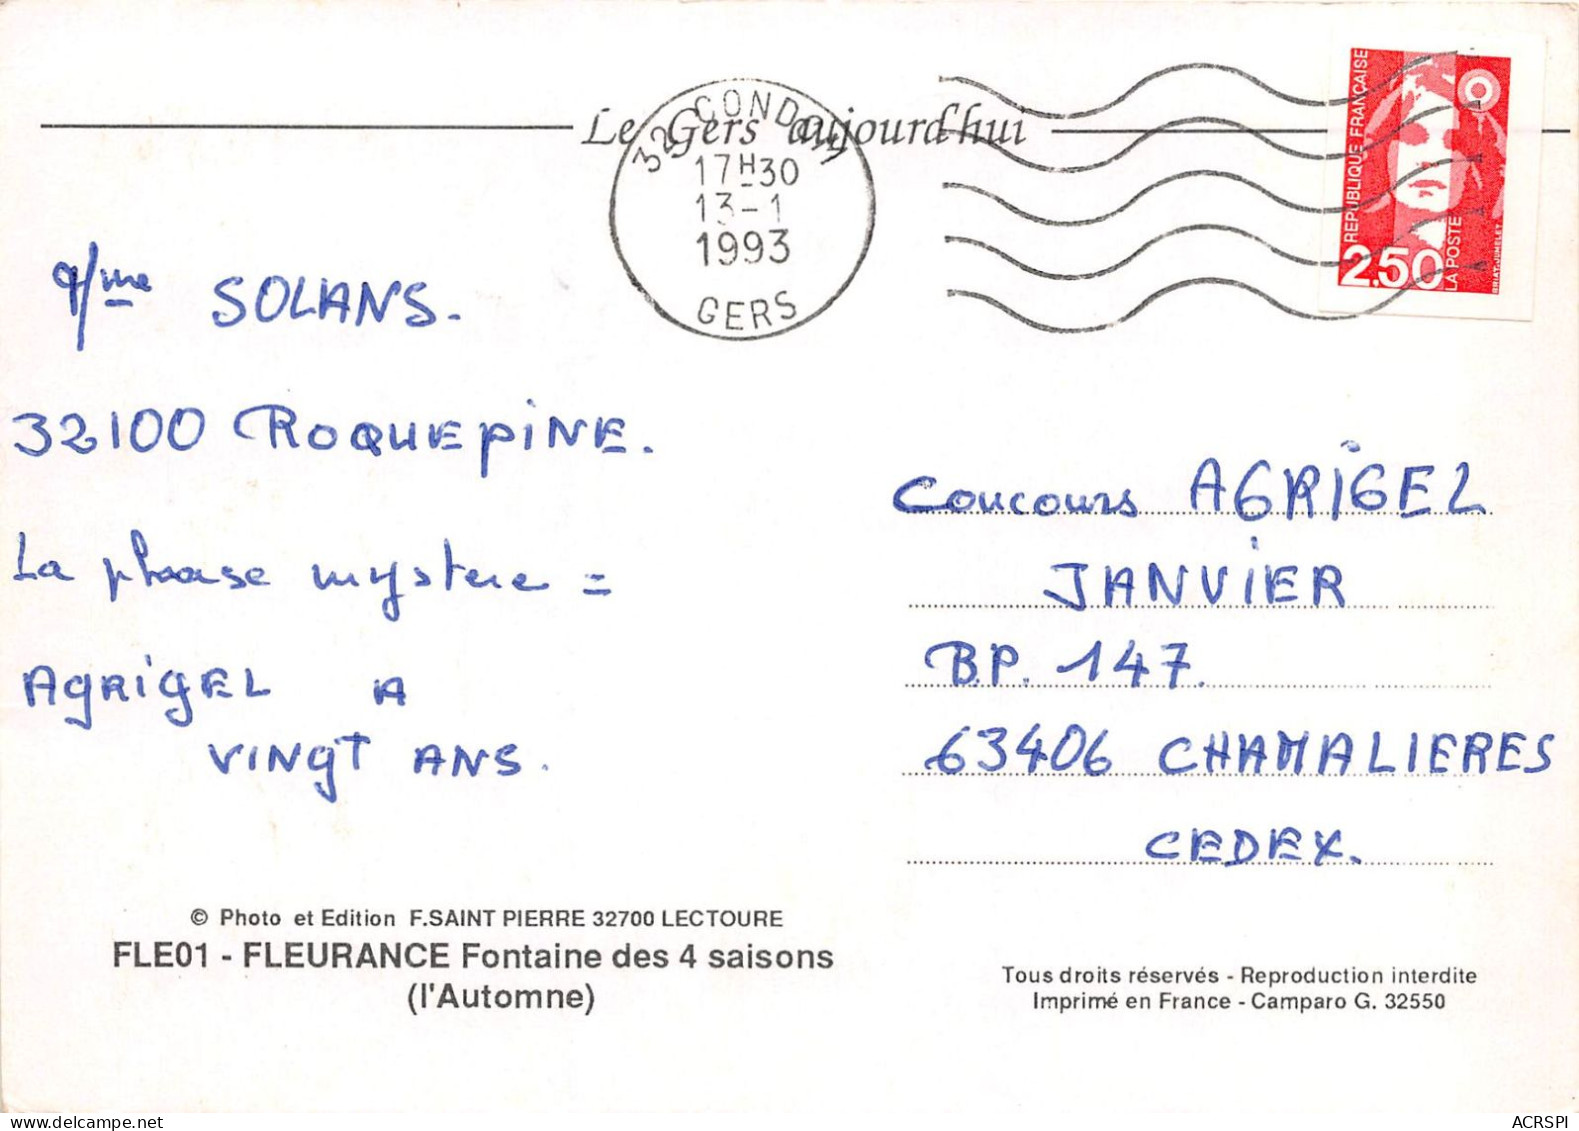 Le Gers aujourd'hui
32 CONDOM
17H30
13-1
1993
GERS
REPUBLIQUE FRANÇAISE
2.50
LA POSTE
BRIAT-JUMELET
Mme SOLANS.
32100 ROQUEPINE.
La phrase mystere =
AGRIGEL A
VINGT ANS.
Concours AGRIGEL
JANVIER
B.P. 147.
63406 CHAMALIERES
CEDEX.
© Photo et Edition F.SAINT PIERRE 32700 LECTOURE
FLE01 - FLEURANCE Fontaine des 4 saisons
(l'Automne)
Tous droits réservés - Reproduction interdite
Imprimé en France - Camparo G. 32550
ACRSPI